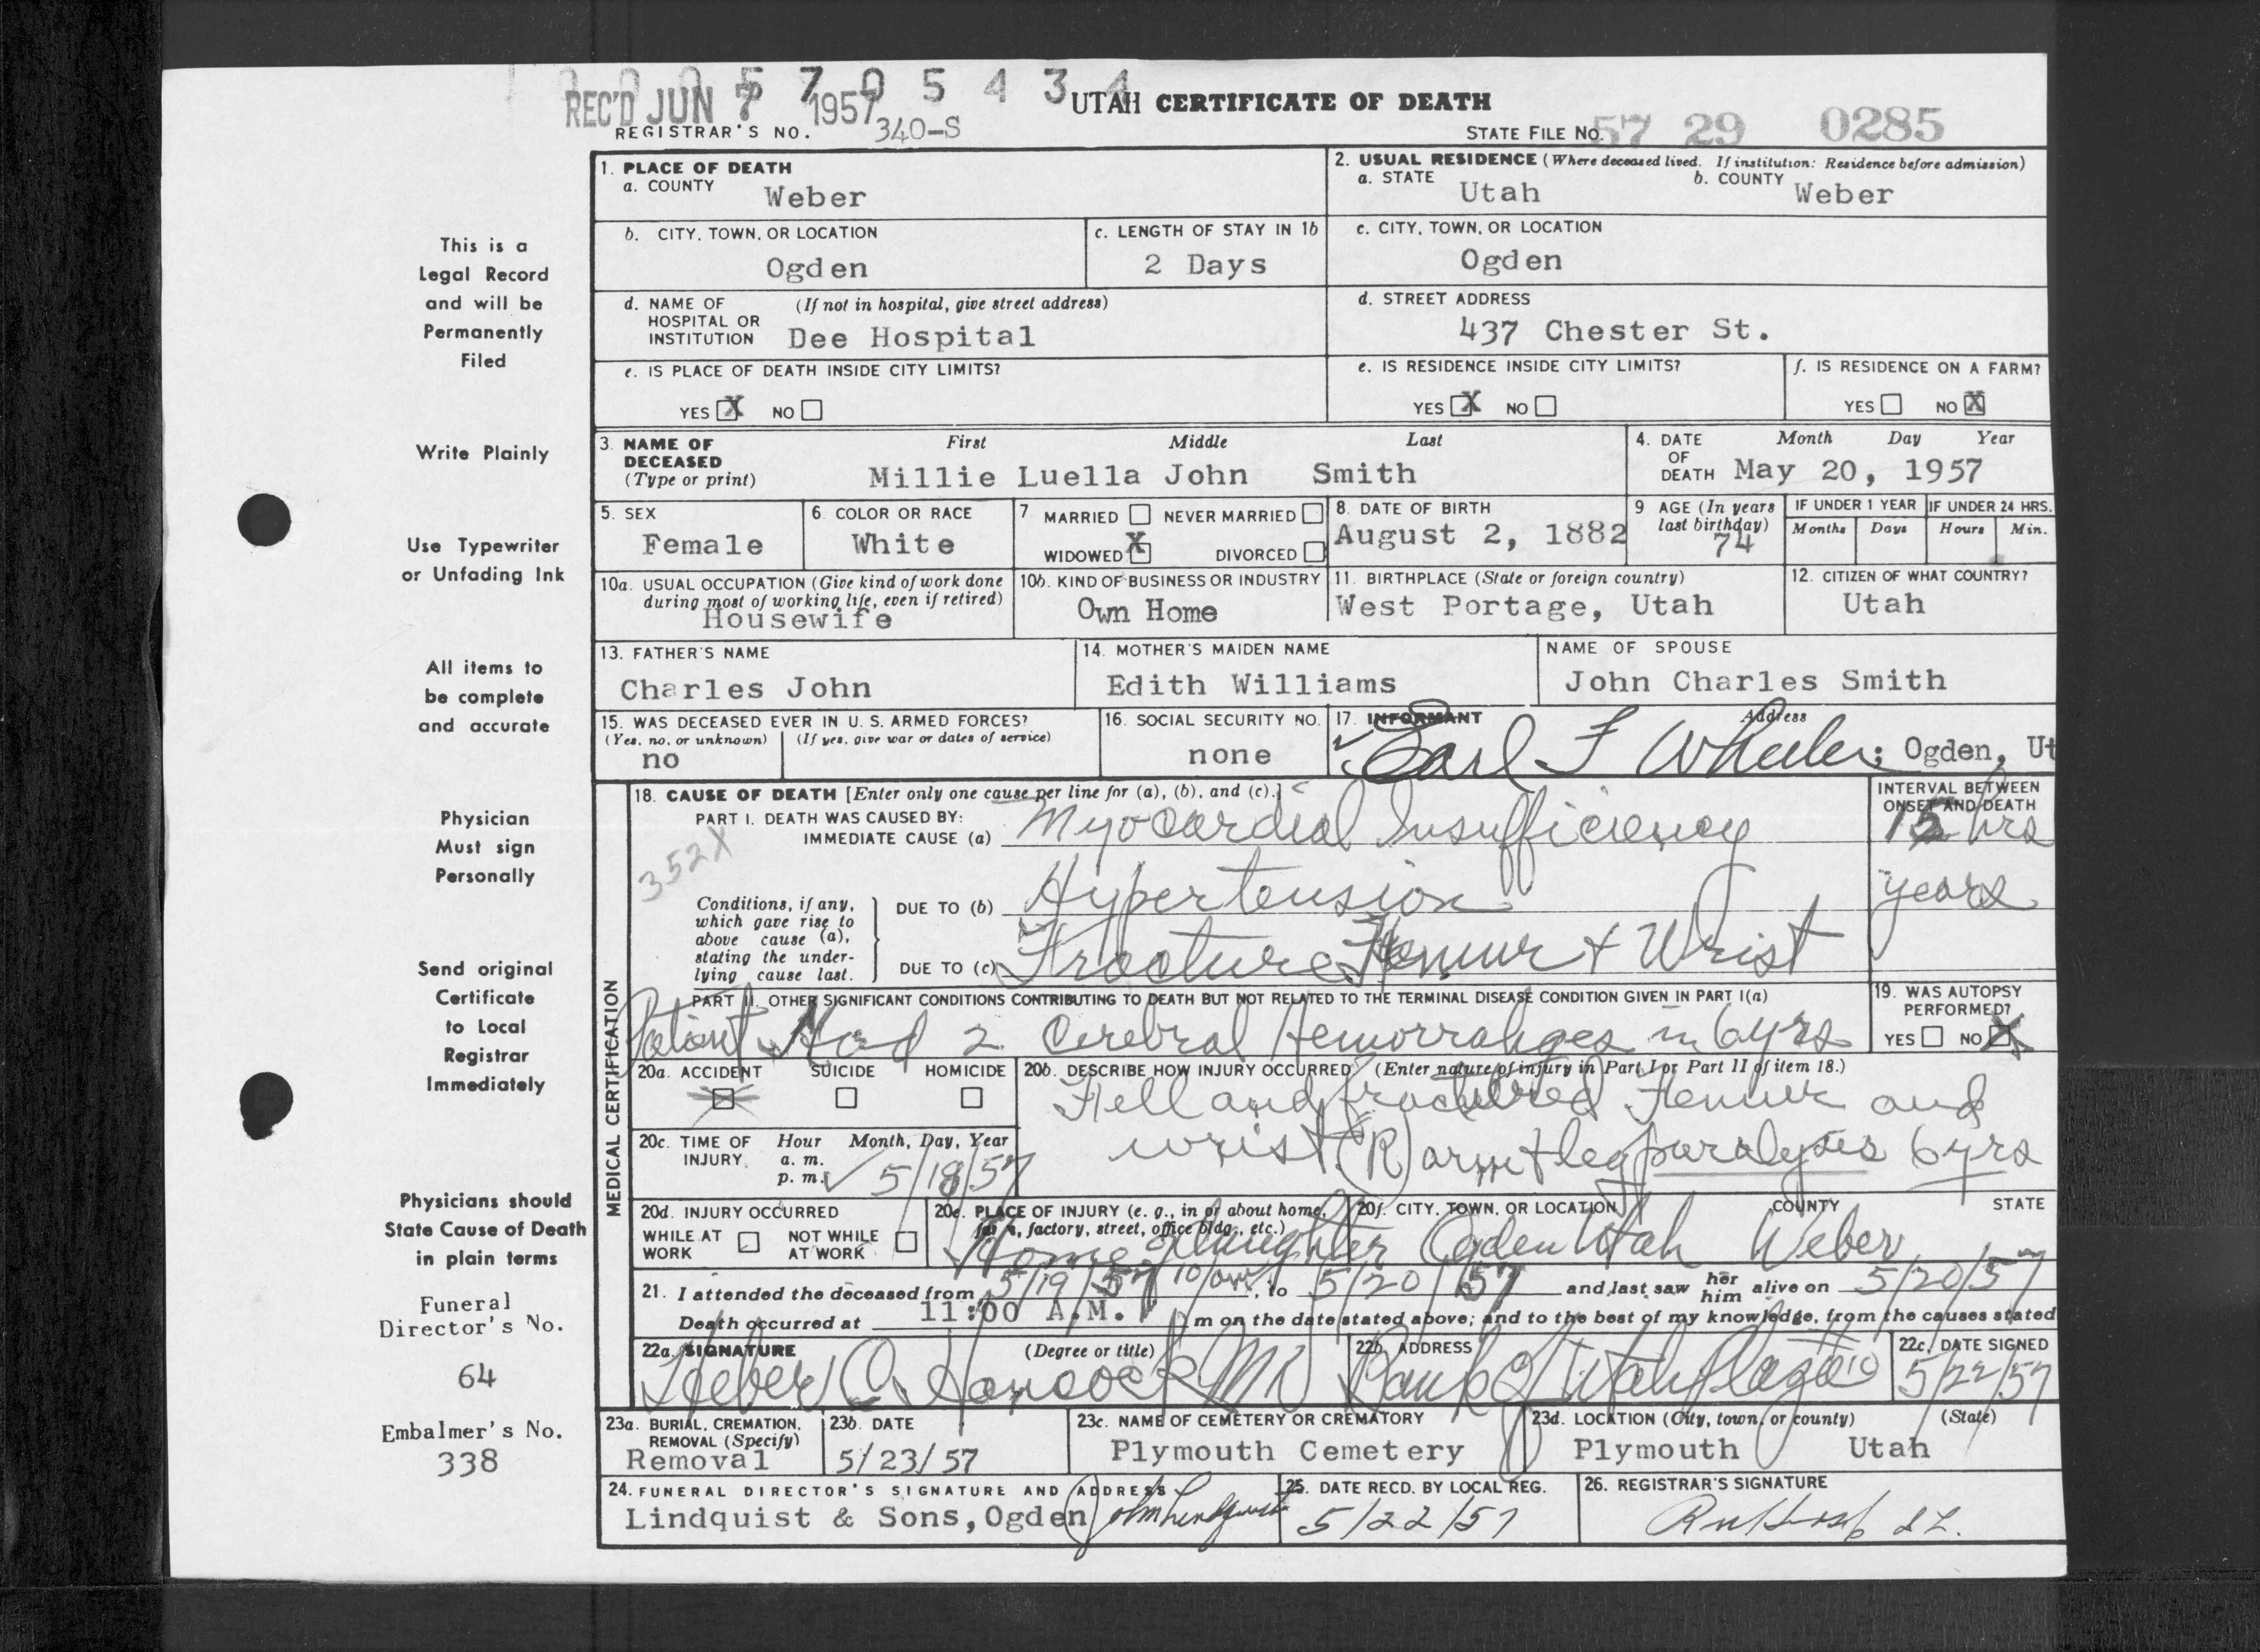 0 0 0 5 7 0 5 4 3 4
REC'D JUN 7 1957
UTAH CERTIFICATE OF DEATH
REGISTRAR'S NO. 340-S
STATE FILE NO. 57 29 0285
This is a
Legal Record
and will be
Permanently
Filed
Write Plainly
Use Typewriter
or Unfading Ink
All items to
be complete
and accurate
Physician
Must sign
Personally
Send original
Certificate
to Local
Registrar
Immediately
Physicians should
State Cause of Death
in plain terms
Funeral
Director's No.
64
Embalmer's No.
338
1. PLACE OF DEATH
a. COUNTY Weber
2. USUAL RESIDENCE (Where deceased lived. If institution: Residence before admission)
a. STATE Utah b. COUNTY Weber
b. CITY, TOWN, OR LOCATION
Ogden
c. LENGTH OF STAY IN 1b
2 Days
c. CITY, TOWN, OR LOCATION
Ogden
d. NAME OF (If not in hospital, give street address)
HOSPITAL OR
INSTITUTION Dee Hospital
d. STREET ADDRESS
437 Chester St.
e. IS PLACE OF DEATH INSIDE CITY LIMITS?
YES X NO
e. IS RESIDENCE INSIDE CITY LIMITS?
YES X NO
f. IS RESIDENCE ON A FARM?
YES NO X
3. NAME OF First Middle Last
DECEASED
(Type or print) Millie Luella John Smith
4. DATE Month Day Year
OF
DEATH May 20, 1957
5. SEX
Female
6. COLOR OR RACE
White
7 MARRIED NEVER MARRIED
WIDOWED X DIVORCED
8. DATE OF BIRTH
August 2, 1882
9 AGE (In years
last birthday)
74
IF UNDER 1 YEAR IF UNDER 24 HRS.
Months Days Hours Min.
10a. USUAL OCCUPATION (Give kind of work done
during most of working life, even if retired)
Housewife
10b. KIND OF BUSINESS OR INDUSTRY
Own Home
11. BIRTHPLACE (State or foreign country)
West Portage, Utah
12. CITIZEN OF WHAT COUNTRY?
Utah
13. FATHER'S NAME
Charles John
14. MOTHER'S MAIDEN NAME
Edith Williams
NAME OF SPOUSE
John Charles Smith
15. WAS DECEASED EVER IN U. S. ARMED FORCES?
(Yes, no, or unknown) (If yes, give war or dates of service)
no
16. SOCIAL SECURITY NO.
none
17. INFORMANT Address
Earl F Wheeler; Ogden, Ut
MEDICAL CERTIFICATION
18. CAUSE OF DEATH [Enter only one cause per line for (a), (b), and (c).]
PART I. DEATH WAS CAUSED BY:
IMMEDIATE CAUSE (a) Myocardial Insufficiency
INTERVAL BETWEEN
ONSET AND DEATH
15 hrs
352X
Conditions, if any,
which gave rise to
above cause (a),
stating the under-
lying cause last.
DUE TO (b) Hypertension
years
DUE TO (c) Fracture Femur + Wrist
PART II. OTHER SIGNIFICANT CONDITIONS CONTRIBUTING TO DEATH BUT NOT RELATED TO THE TERMINAL DISEASE CONDITION GIVEN IN PART I(a)
Patient Had 2 Cerebral Hemorrahges in 6 yrs
19. WAS AUTOPSY
PERFORMED?
YES NO X
20a. ACCIDENT SUICIDE HOMICIDE
X
20b. DESCRIBE HOW INJURY OCCURRED (Enter nature of injury in Part I or Part II of item 18.)
Fell and fractured Femur and
wrist (R) arm + leg paralysis 6 yrs
20c. TIME OF Hour Month, Day, Year
INJURY a. m.
p. m. 5/18/57
20d. INJURY OCCURRED
WHILE AT NOT WHILE
WORK AT WORK
20e. PLACE OF INJURY (e. g., in or about home,
farm, factory, street, office bldg., etc.)
Home of Daughter
20f. CITY, TOWN, OR LOCATION COUNTY STATE
Ogden Utah Weber
21. I attended the deceased from 5/19/57 10/am, to 5/20/57 and last saw her him alive on 5/20/57
Death occurred at 11:00 A.M. m on the date stated above; and to the best of my knowledge, from the causes stated
22a. SIGNATURE (Degree or title)
Heber C. Hancock MD
22b. ADDRESS
Bank of Utah Plaza
22c. DATE SIGNED
5/22/57
23a. BURIAL, CREMATION,
REMOVAL (Specify)
Removal
23b. DATE
5/23/57
23c. NAME OF CEMETERY OR CREMATORY
Plymouth Cemetery
23d. LOCATION (City, town, or county) (State)
Plymouth Utah
24. FUNERAL DIRECTOR'S SIGNATURE AND ADDRESS
Lindquist & Sons, Ogden John Lindquist
25. DATE RECD. BY LOCAL REG.
5/22/57
26. REGISTRAR'S SIGNATURE